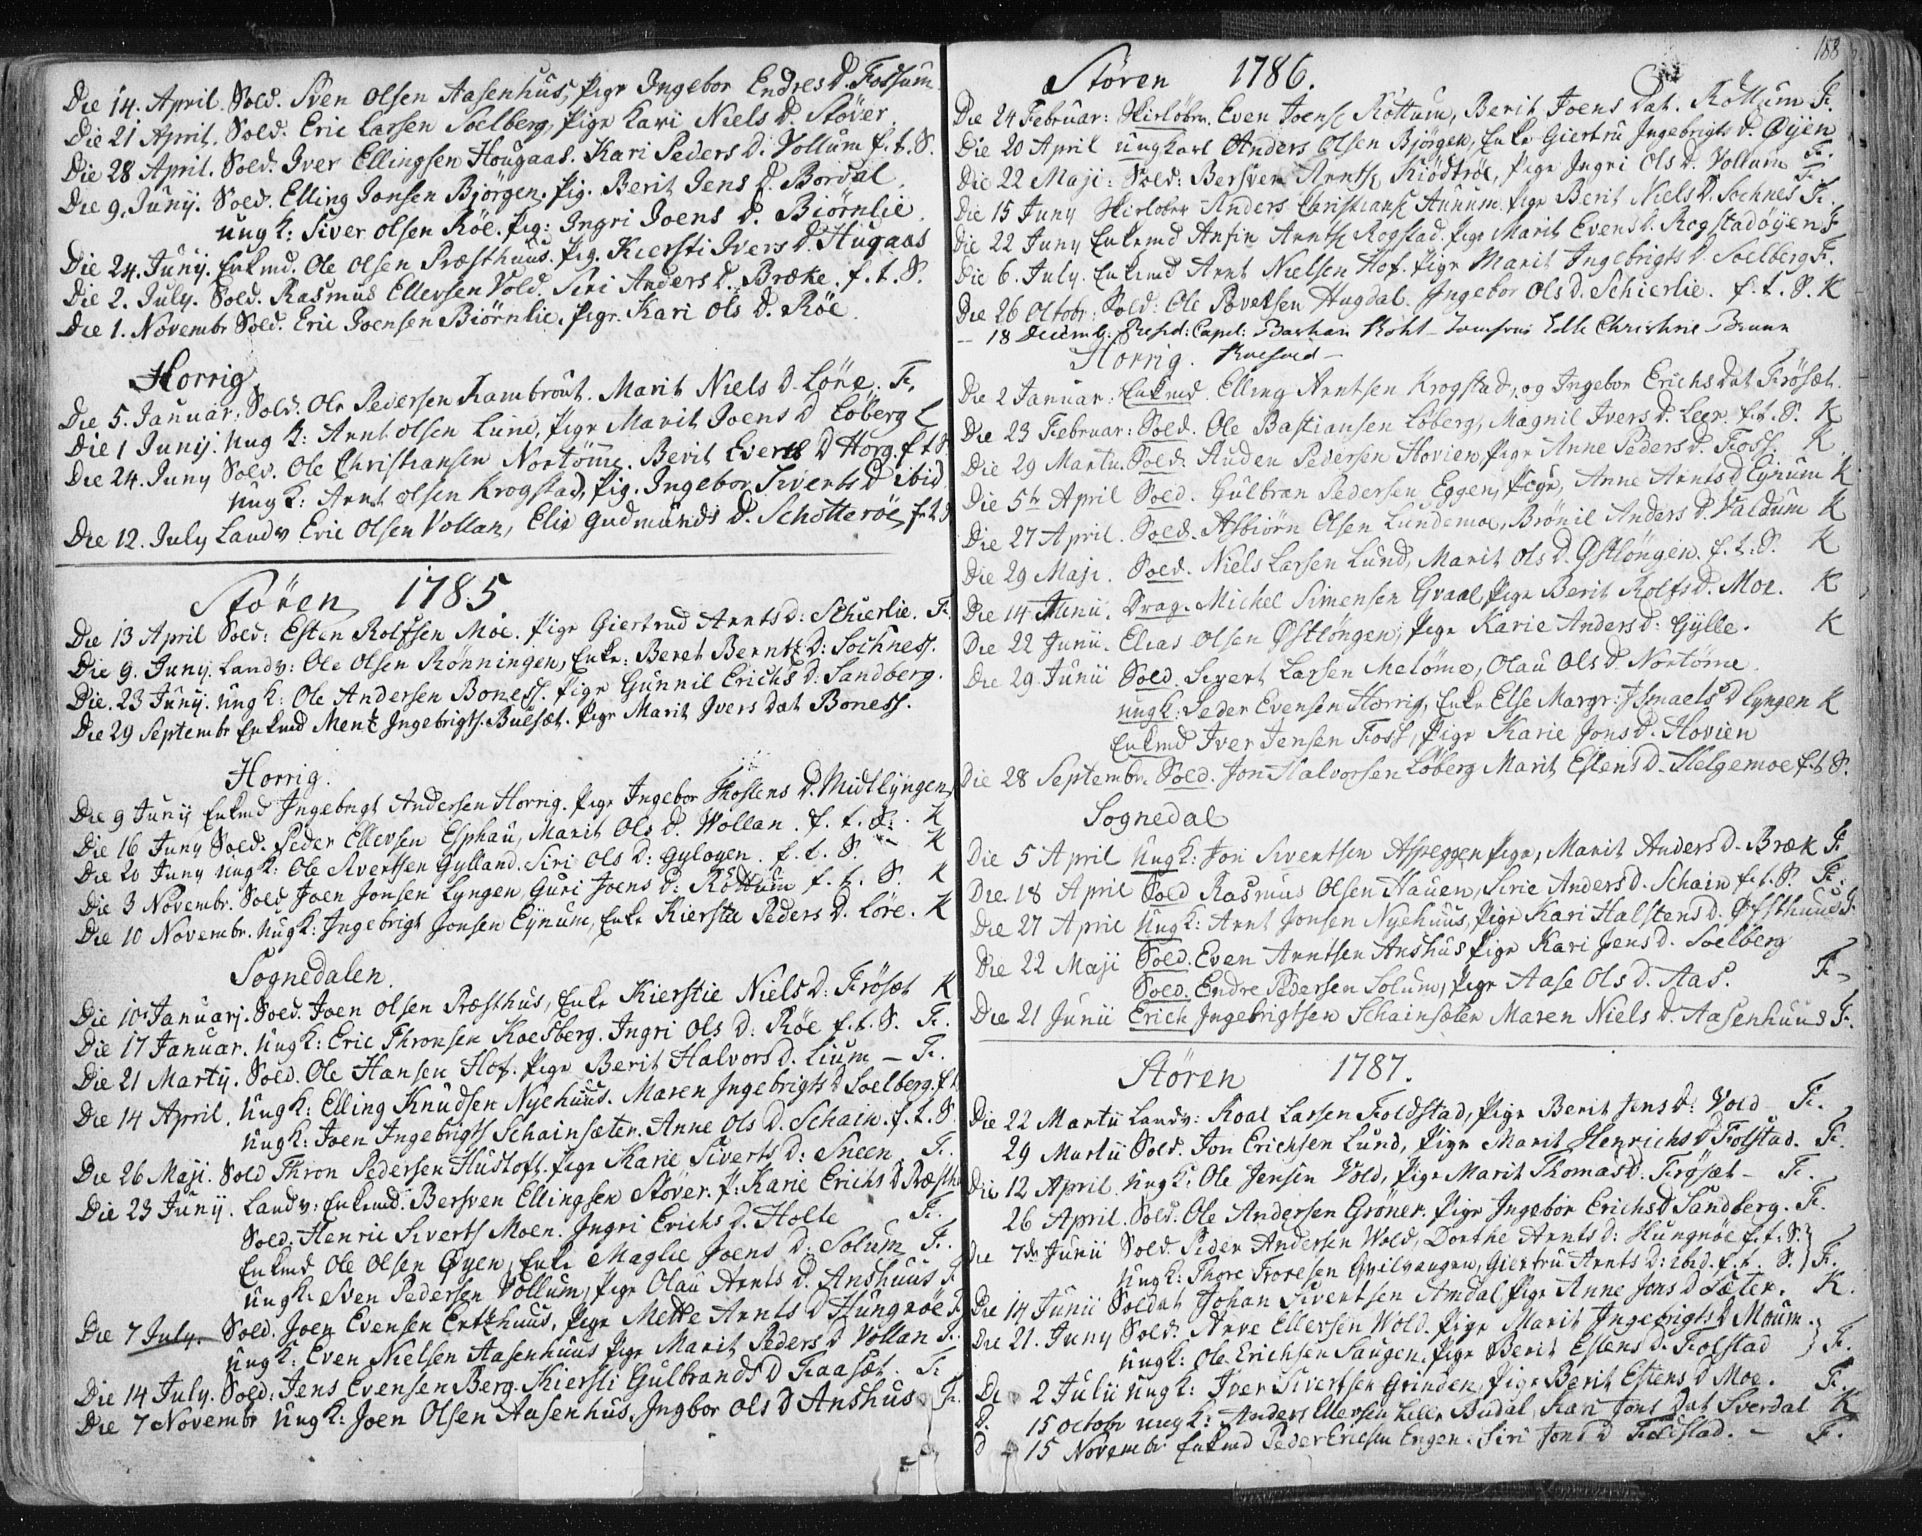 Die 14. April. Sold. Sven Olsen Aasenhus, Pige Ingebor Endres D. Fossum.
Die 21 April. Sold. Eric Larsen Soelberg, Pige Kari Niels D. Støver.
Die 28 April. Sold. Iver Ellingsen Hougaas. Kari Peders D. Vollum f. t. S.
Die 9. Junij. Sold. Elling Jonsen Bjørgen, Pig. Berit Jens D. Bordal.
Ung K: Siver Olsen Røe. Pig: Ingri Joens D. Biørnlie.
Die 24. Junij. Enkmd. Ole Olsen Præsthuus. Pig. Kiersti Ivers D. Hugaas
Die 2. July. Sold. Rasmus Ellevsen Vold. Siri Anders D. Bræke. f. t. S.
Die 1. Novembr Sold. Eric Joensen Biørnlie. Pige. Kari Ols D. Røe.
Horrig.
Die 5. Januar. Sold. Ole Pedersen Rambrout. Marit Niels D. Løre. F.
Die 1 Junij. Ung K: Arnt Olsen Lund, Pige Marit Joens D Løberg
Die 24. Juny Sold. Ole Christiansen Nortømme. Berit Everts D Horg. f t S
Ung K: Arnt Olsen Krogstad, Pig. Ingebor Siverts D ibid.
Die 12. July Landv Eric Olsen Vollan, Elie Gudmunds D. Schotterøe, f. t. S
Støren 1785.
Die 13 April Sold: Esten Rolfsen Moe. Pige Giertrud Arnts D: Schierlie. F.
Die 9. Junij. Landv: Ole Olsen Rønningen, Enke: Beret Berntz D: Sochness.
Die. 23 Junij. Ung K: Ole Andersen Boness. Pige Gunnil Erichs D: Sandberg.
Die 29 Septembr Enkmd Mentz Ingebrigts. Buesæt. Pige Marit Ivers Dat Boness.
Horrig.
Die 9 Junij Enkmd Ingebrigt Andersen Horrig. Pige Ingebor Thostens D. Midtlyngen
Die 16 Juny Sold. Peder Ellevsen Esphau, Marit Ols D. Wollan. f. t. S. K
Die 20 Juny Ung K: Ole Sivertsen Gylland. Siri Ols D: Gyloyen. f. t. S. K
Die 3 Novembr. Sold Joen Jonsen Lyngen, Guri Joens D: Rottum f. t. S. K
Die 10 Novembr. Ung K: Ingebrigt Jonsen Eynum, Enke Kierstie Peders D. Løre. K
Sognedalen.
Die 10 Januarj. Sold. Joen Olsen Præsthus, Enke Kierstie Niels D: Frøsæt K
Die 17 Januar. Ung K: Eric Thronsen Koesberg. Ingri Ols D: Røe f. t. S. F.
Die 21 Martij. Sold. Ole Hansen Hof. Pige Berit Halvors D. Lium – F.
Die 14 April. Ung K: Elling Knudsen Nyehuus. Maren Ingebrigts D Soelberg. f. t
Ung K: Joen Ingebrigts Schainsæter. Anne Ols D. Schain. f. t. S.
Die 26 Maji. Sold Thron Pedersen Hustoft. Pige Karie Siverts D: Sneen F.
Die 23 Junij. Landv: Enkemd. Bersven Ellingsen Støver. P: Karie Erichs D Præsth
Sold. Henric Siverts Moen. Ingri Erichs D. Holte F.
Enkmd Ole Olsen Øyen, Enke Maglie Joens D: Solum F.
Ung K: Even Pedersen Vollum, Pige Olau Arnts D. Anshuus F
Die 7 July. Sold. Joen Evensen Ertzhuus, Pige Mette Arnts D Hungnøe F
Ung K: Even Nielsen Aasenhuus Pige Marit Peders D Vollan F.
Die 14 July. Sold: Jens Evensen Berg. Kiersti Gulbrands D Fraasæt. F.
Die 7 Novembr Ung K: Joen Olsen Aasenhus, Ingbor Ols D Anshus F.
188
Støren 1786.
Die 24 Februar: Skieløber. Even Joens Rottum, Berit Joens Dat. Rottum F.
Die 20 April Ungkarl Anders Olsen Bjørgen, Enke Giertru Ingebrigts D. Øyen
Die 22 Maji: Sold: Bersven Arnts Kiødtrøe, Pige Ingri Ols D. Vollum F.
Die 15 Juny Skieløber Anders Christians Aunum. Pige Berit Niels D. Sochnes F.
Die 22 Juny Enkemd Anfin Arnts Rogstad. Pige Marit Evens D. Rogstadøyen F
Die 6. July. Enkemd Arnt Nielsen Hof. Pige Marit Ingebrigts D Soelberg F.
Die 26 Octobr: Sold: Ole Povelsen Hugdal. Ingebor Ols D. Schierlie. f. t. S. K
– 18 Decemb: Capit: Bastian Kohl – Jomfrue Edle Christine Bruun
Horrig.
Die 2 Januar: Enkmd. Elling Arntsen Krogstad, og Ingebor Erichs Dat Frøsæt.
Die 23 Februar: Sold. Ole Bastiansen Løberg, Magnil Ivers D. Leer f. t. S. K
Die 29 Martii. Sold. Auden Pedersen Hovien, Pige Anne Peders D. Foss. K
Die 5te April Sold. Gulbran Pedersen Eggen, Pige, Anne Arnts D Eynum K
Die 27 April. Sold. Asbiørn Olsen Lundemoe, Brønil Anders D. Valdum K
Die 29 Maji. Sold. Niels Larsen Lund, Marit Ols D. Østlöngen. f. t. S. K
Die 14 Junii. Drag. Michel Simensen Graael, Pige Berit Rolfs D. Moe. K
Die 22 Junii. Elias Olsen Østlöngen, Pige Karie Anders D: Gylle. K
Die 29 Junii Sold. Sivert Larsen Meløme, Olau Ols D. Nortøme.
Ung K. Peder Evensen Horrig, Enke Else Margr: Ismaels D Lyngen K
Enkmd Iver Jensen Foss, Pige Karie Jons D. Hovien
Die 28 Septembr. Sold. Jon Halvorsen Løberg Marit Estens D. Helgemoe f. t S.
Sognedal
Die 5 April Ung K: Jon Sivertsen Aspeggen Pige, Marit Anders D. Bræk F.
Die. 18 April Sold Rasmus Olsen Hauen, Sirie Anders D. Schain f. t. S. F.
Die 27 April Ung K: Arnt Jonsen Nyehuus, Pige Kari Halstens D. Øfsthuus F.
Die 22 Maji Sold. Even Arntsen Anshus Pige Kari Jens D. Soelberg
Sold. Endre Pedersen Solum, Pige Aase Ols D. Aas. F.
Die 21 Junii Erich Ingebrigtsen Schainsæter Maren Niels D. Aasenhuus F.
Støren 1787.
Die 22 Martii Landv: Roal Larsen Foldstad, Pige Berit Jens D: Vold – F.
29 Martii Sold. Jon Erichsen Lund, Pige Marit Henrichs D Folstad. F.
Die 12 April. Ung K: Ole Jensen Vold, Pige Marit Thomas D. Frøsæt – F.
26 April. Sold. Ole Andersen Grøner. Pige Ingebor Erichs D Sandberg. F.
Die 7de Junii Sold. Peder Andersen Wold, Dorthe Arnts D: Hungnøe f. t. S.
Ung K: Thore Toresen Gvilvangen, Giertru Arnts D: ibid. f. t. S. F.
Die 14 Junii Soldat Johan Sivertsen Amdal, Pige Anne Jons D Sæter. K.
Die 21. Juny Sold. Arve Ellevsen Wold. Pige Marit Ingebrigts D Moum.
Ung K: Ole Erichsen Haugen. Pige Berit Estens D. Folstad F.
Di 2 Julii Ung K: Iver Sivertsen Grinden, Pige Berit Estens D Moe. F.
D. 15 Octobr Ung K: Anders Ellevsen Lille Budal, Kari Jons Dat Sverdal K
D 15 Novembr Enkmd Peder Ericsen Engen. Siri Jons D Folstad. – F.